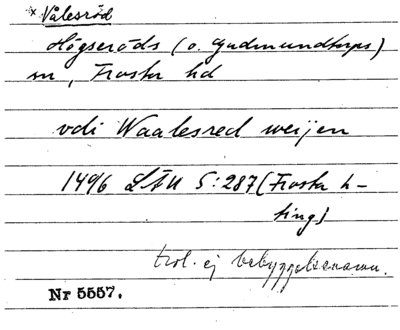 * Välesröd
Högseröds (o. Gudmundtorps)
sn, Frosta hd
vdi Waalesred weijen
1496 LÄU 5:287 (Frosta h-
ting)
trol. ej bebyggelsenamn.
Nr 5557.